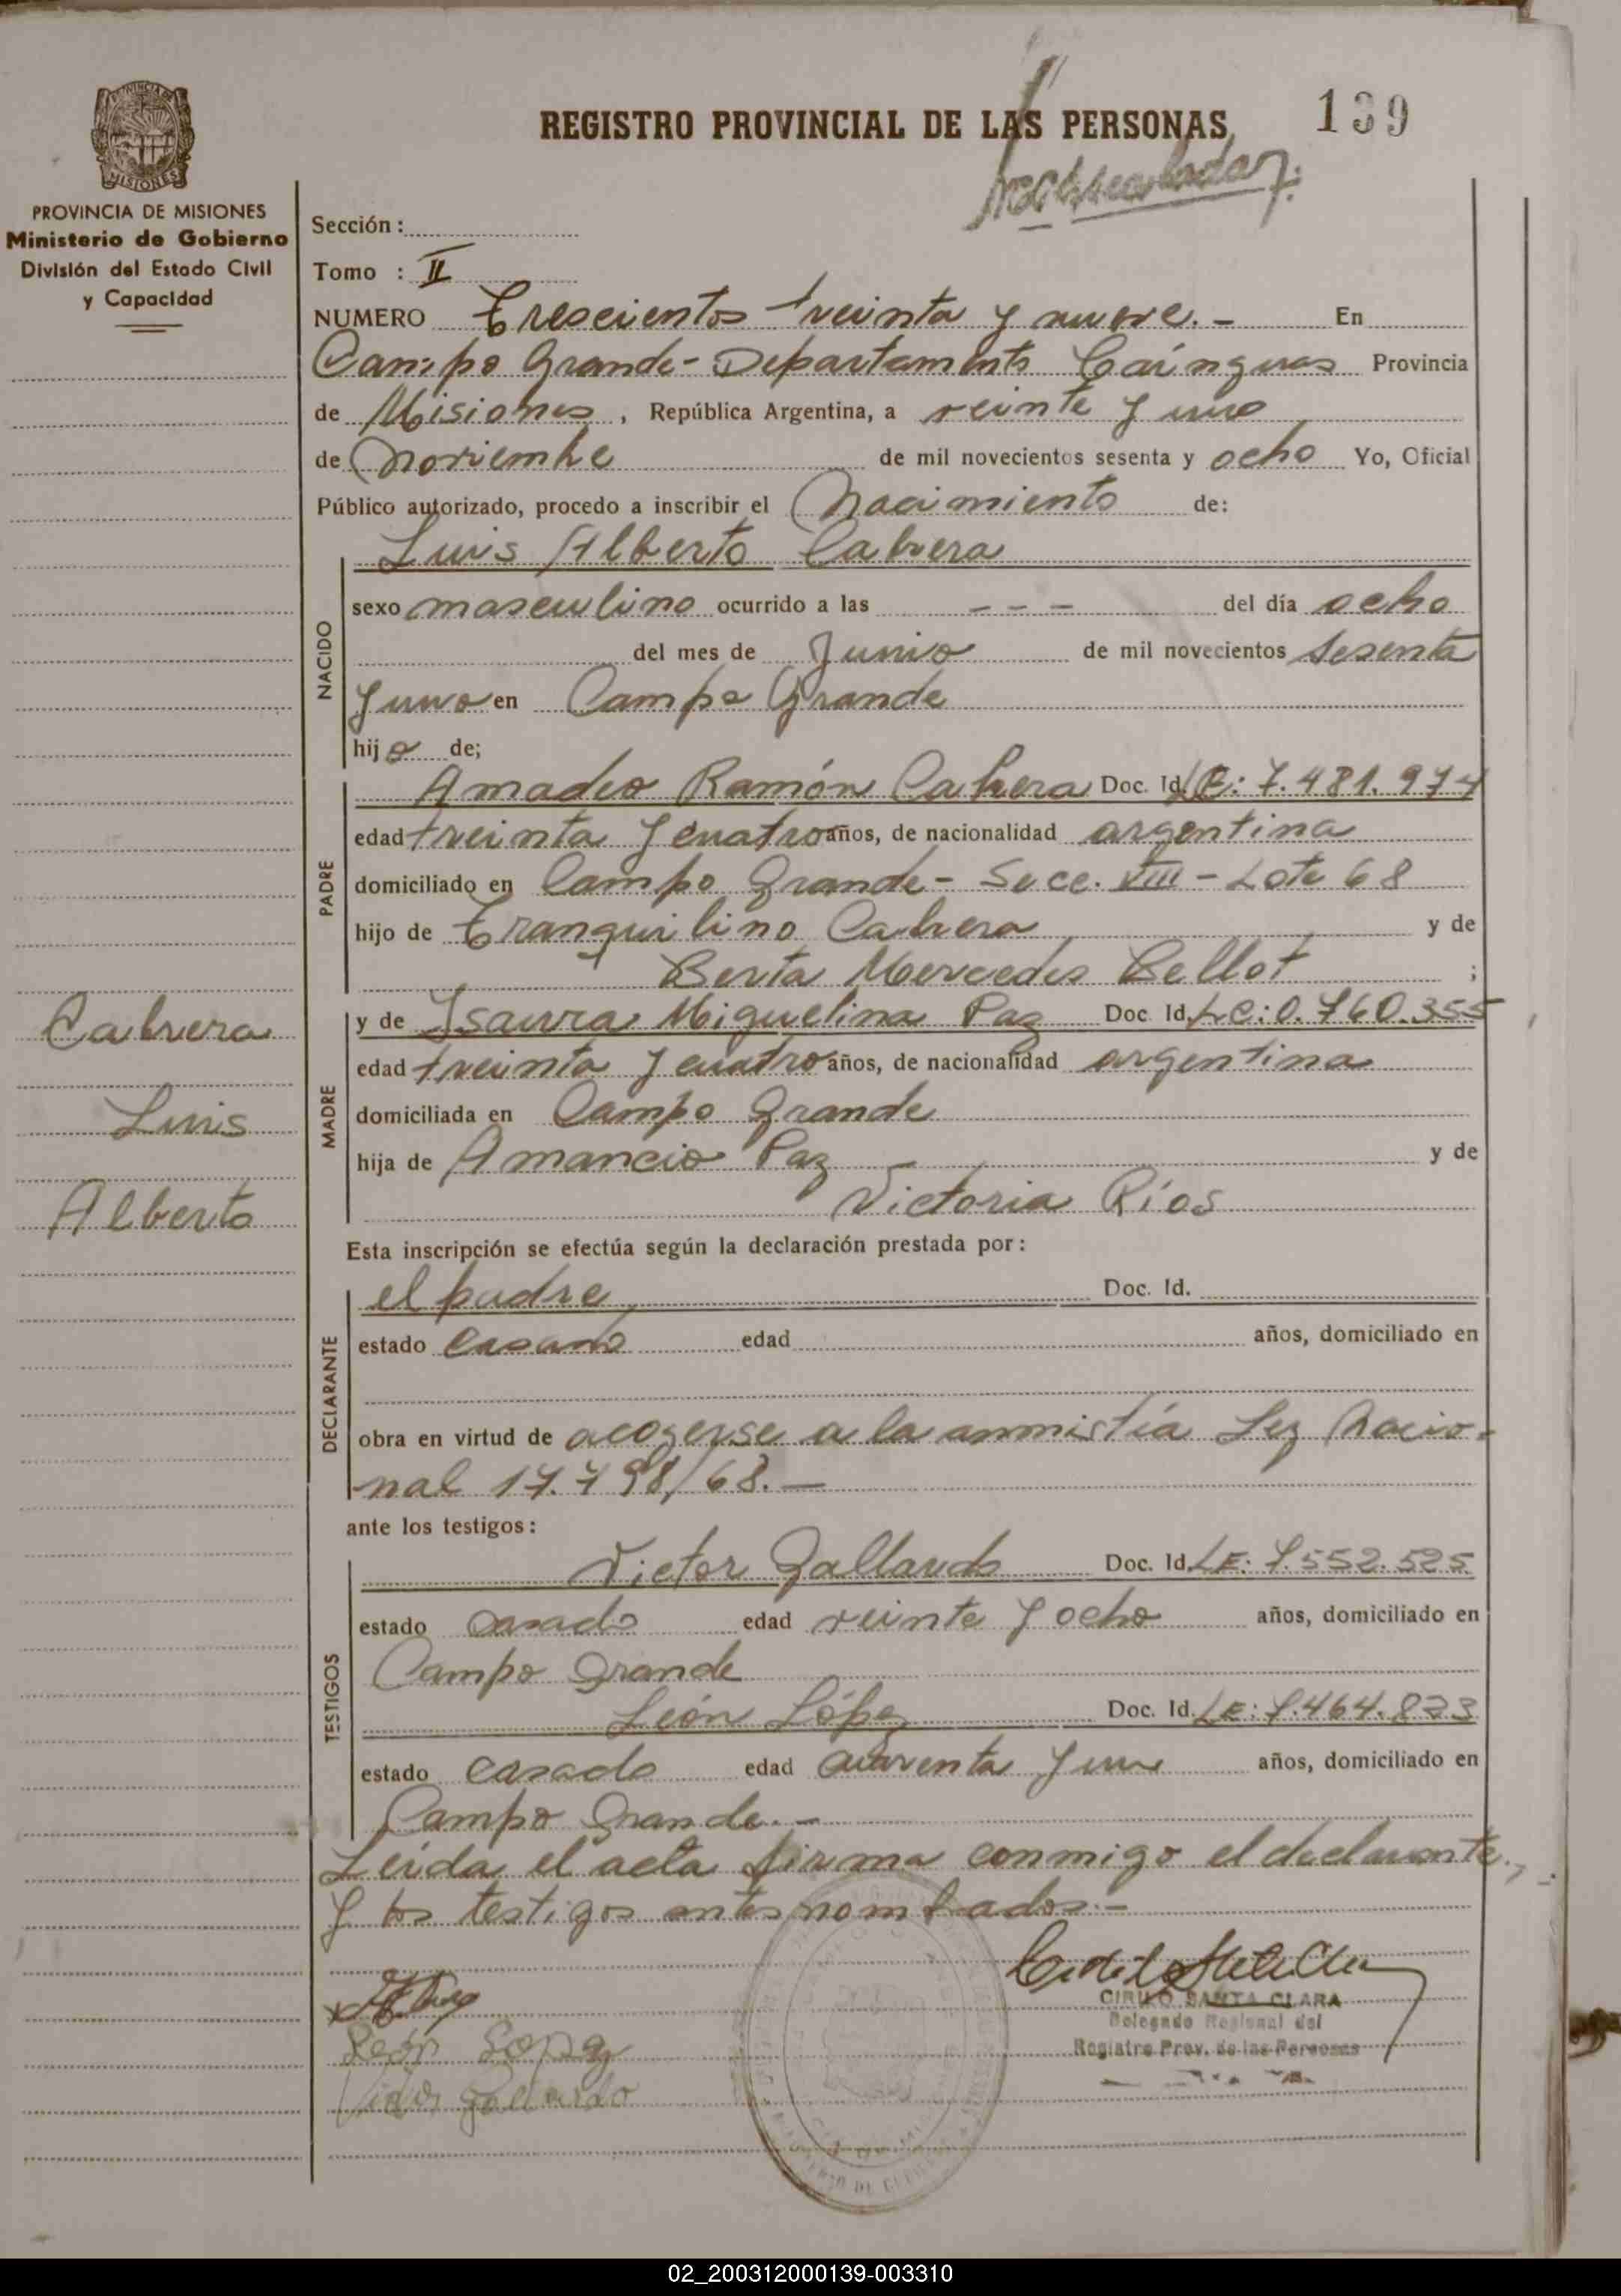 REGISTRO PROVINCIAL DE LAS PERSONAS
139
PROVINCIA DE MISIONES
MISIONES
PROVINCIA DE MISIONES
Ministerio de Gobierno
División del Estado Civil
y Capacidad
Sección :
Tomo : II
NUMERO Trescientos treinta y nueve.- En
Campo Grande - Departamento Cainguas Provincia
de Misiones, República Argentina, a veinte y uno
de Noviembre de mil novecientos sesenta y ocho Yo, Oficial
Público autorizado, procedo a inscribir el Nacimiento de:
Luis Alberto Cabrera
NACIDO
sexo masculino ocurrido a las - - - del día ocho
del mes de Junio de mil novecientos sesenta
y uno en Campo Grande
hijo de;
PADRE
Amadeo Ramón Cabrera Doc. Id. LE: 7.481.974
edad treinta y cuatro años, de nacionalidad argentina
domiciliado en Campo Grande - Secc. VIII - Lote 68
hijo de Tranquilino Cabrera y de
Berta Mercedes Bellot ;
MADRE
y de Isaura Miguelina Paz Doc. Id. LC: 0.760.355
edad treinta y cuatro años, de nacionalidad argentina
domiciliada en Campo Grande
hija de Amancio Paz y de
Victoria Ríos
Cabrera
Luis
Alberto
Esta inscripción se efectúa según la declaración prestada por :
DECLARANTE
el padre Doc. Id.
estado casado edad años, domiciliado en
obra en virtud de acogerse a la amnistía Ley Nacio-
nal 17.798/68.-
ante los testigos :
TESTIGOS
Victor Gallardo Doc. Id. LE: 7.552.525
estado casado edad veinte y ocho años, domiciliado en
Campo Grande
León López Doc. Id. LE: 7.464.823
estado casado edad cuarenta y uno años, domiciliado en
Campo Grande.-
Leida el acta firma conmigo el declarante
y los testigos antes nombrados.-
CIRILO SANTA CLARA
Delegado Regional del
Registro Prov. de las Personas
León Lopez
Victor Gallardo
02_200312000139-003310